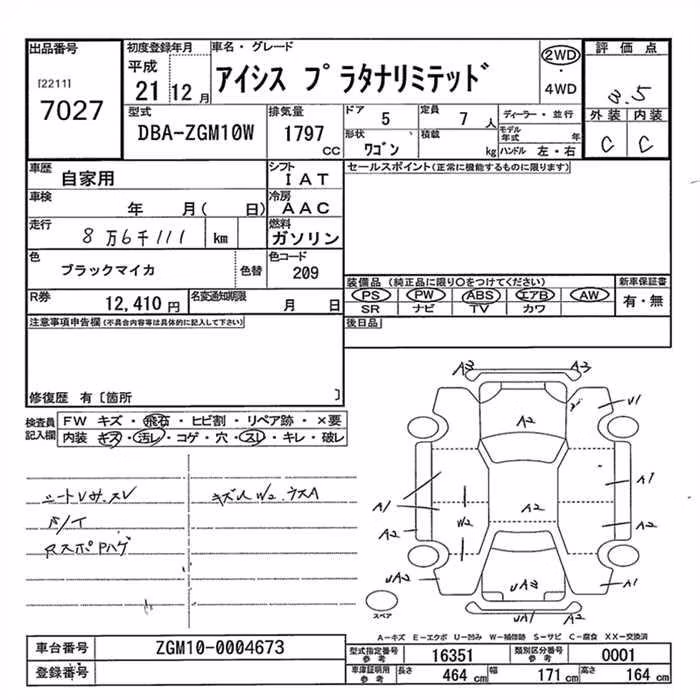 出品番号
[2211]
7027
初度登録年月
平成
21 12 月
車名・グレード
アイシス プラタナリミテッド
2WD
・
4WD
評価点
3.5
外装 内装
C C
型式
DBA-ZGM10W
排気量
1797
CC
ドア 5
形状 ワゴン
定員 7 人
積載 kg
ディーラー・並行
モデル年式 年
ハンドル 左・右
車歴 自家用
シフト IAT
車検 年 月( 日)
冷房 AAC
走行 8万6千111 km
燃料 ガソリン
色 ブラックマイカ 色替
色コード 209
R券 12,410 円
名変通知期限 月 日
セールスポイント(正常に機能するものに限ります)
装備品(純正品に限り○をつけてください)
PS PW ABS エアB AW
SR ナビ TV カワ
新車保証書
有・無
後日品
注意事項申告欄(不具合内容等は具体的に記入して下さい)
修復歴 有〔箇所 〕
検査員記入欄
FW キズ・飛石・ヒビ割・リペア跡・×要
内装 キズ・汚レ・コゲ・穴・スレ・キレ・破レ
シートVサ.スV
キズ人W2.ウスA
RスポPハゲ
A3 A3
A2 U1
A1 A1
A2 W2 A2 A2
UA2 UA3 A1
UA1 A2
スペア
A-キズ E-エクボ U-凹み W-補修跡 S-サビ C-腐食 XX-交換済
車台番号 ZGM10-0004673
登録番号
型式指定番号 参考 16351
類別区分番号 参考 0001
車庫証明用 参考 長さ 464 cm 幅 171 cm 高さ 164 cm